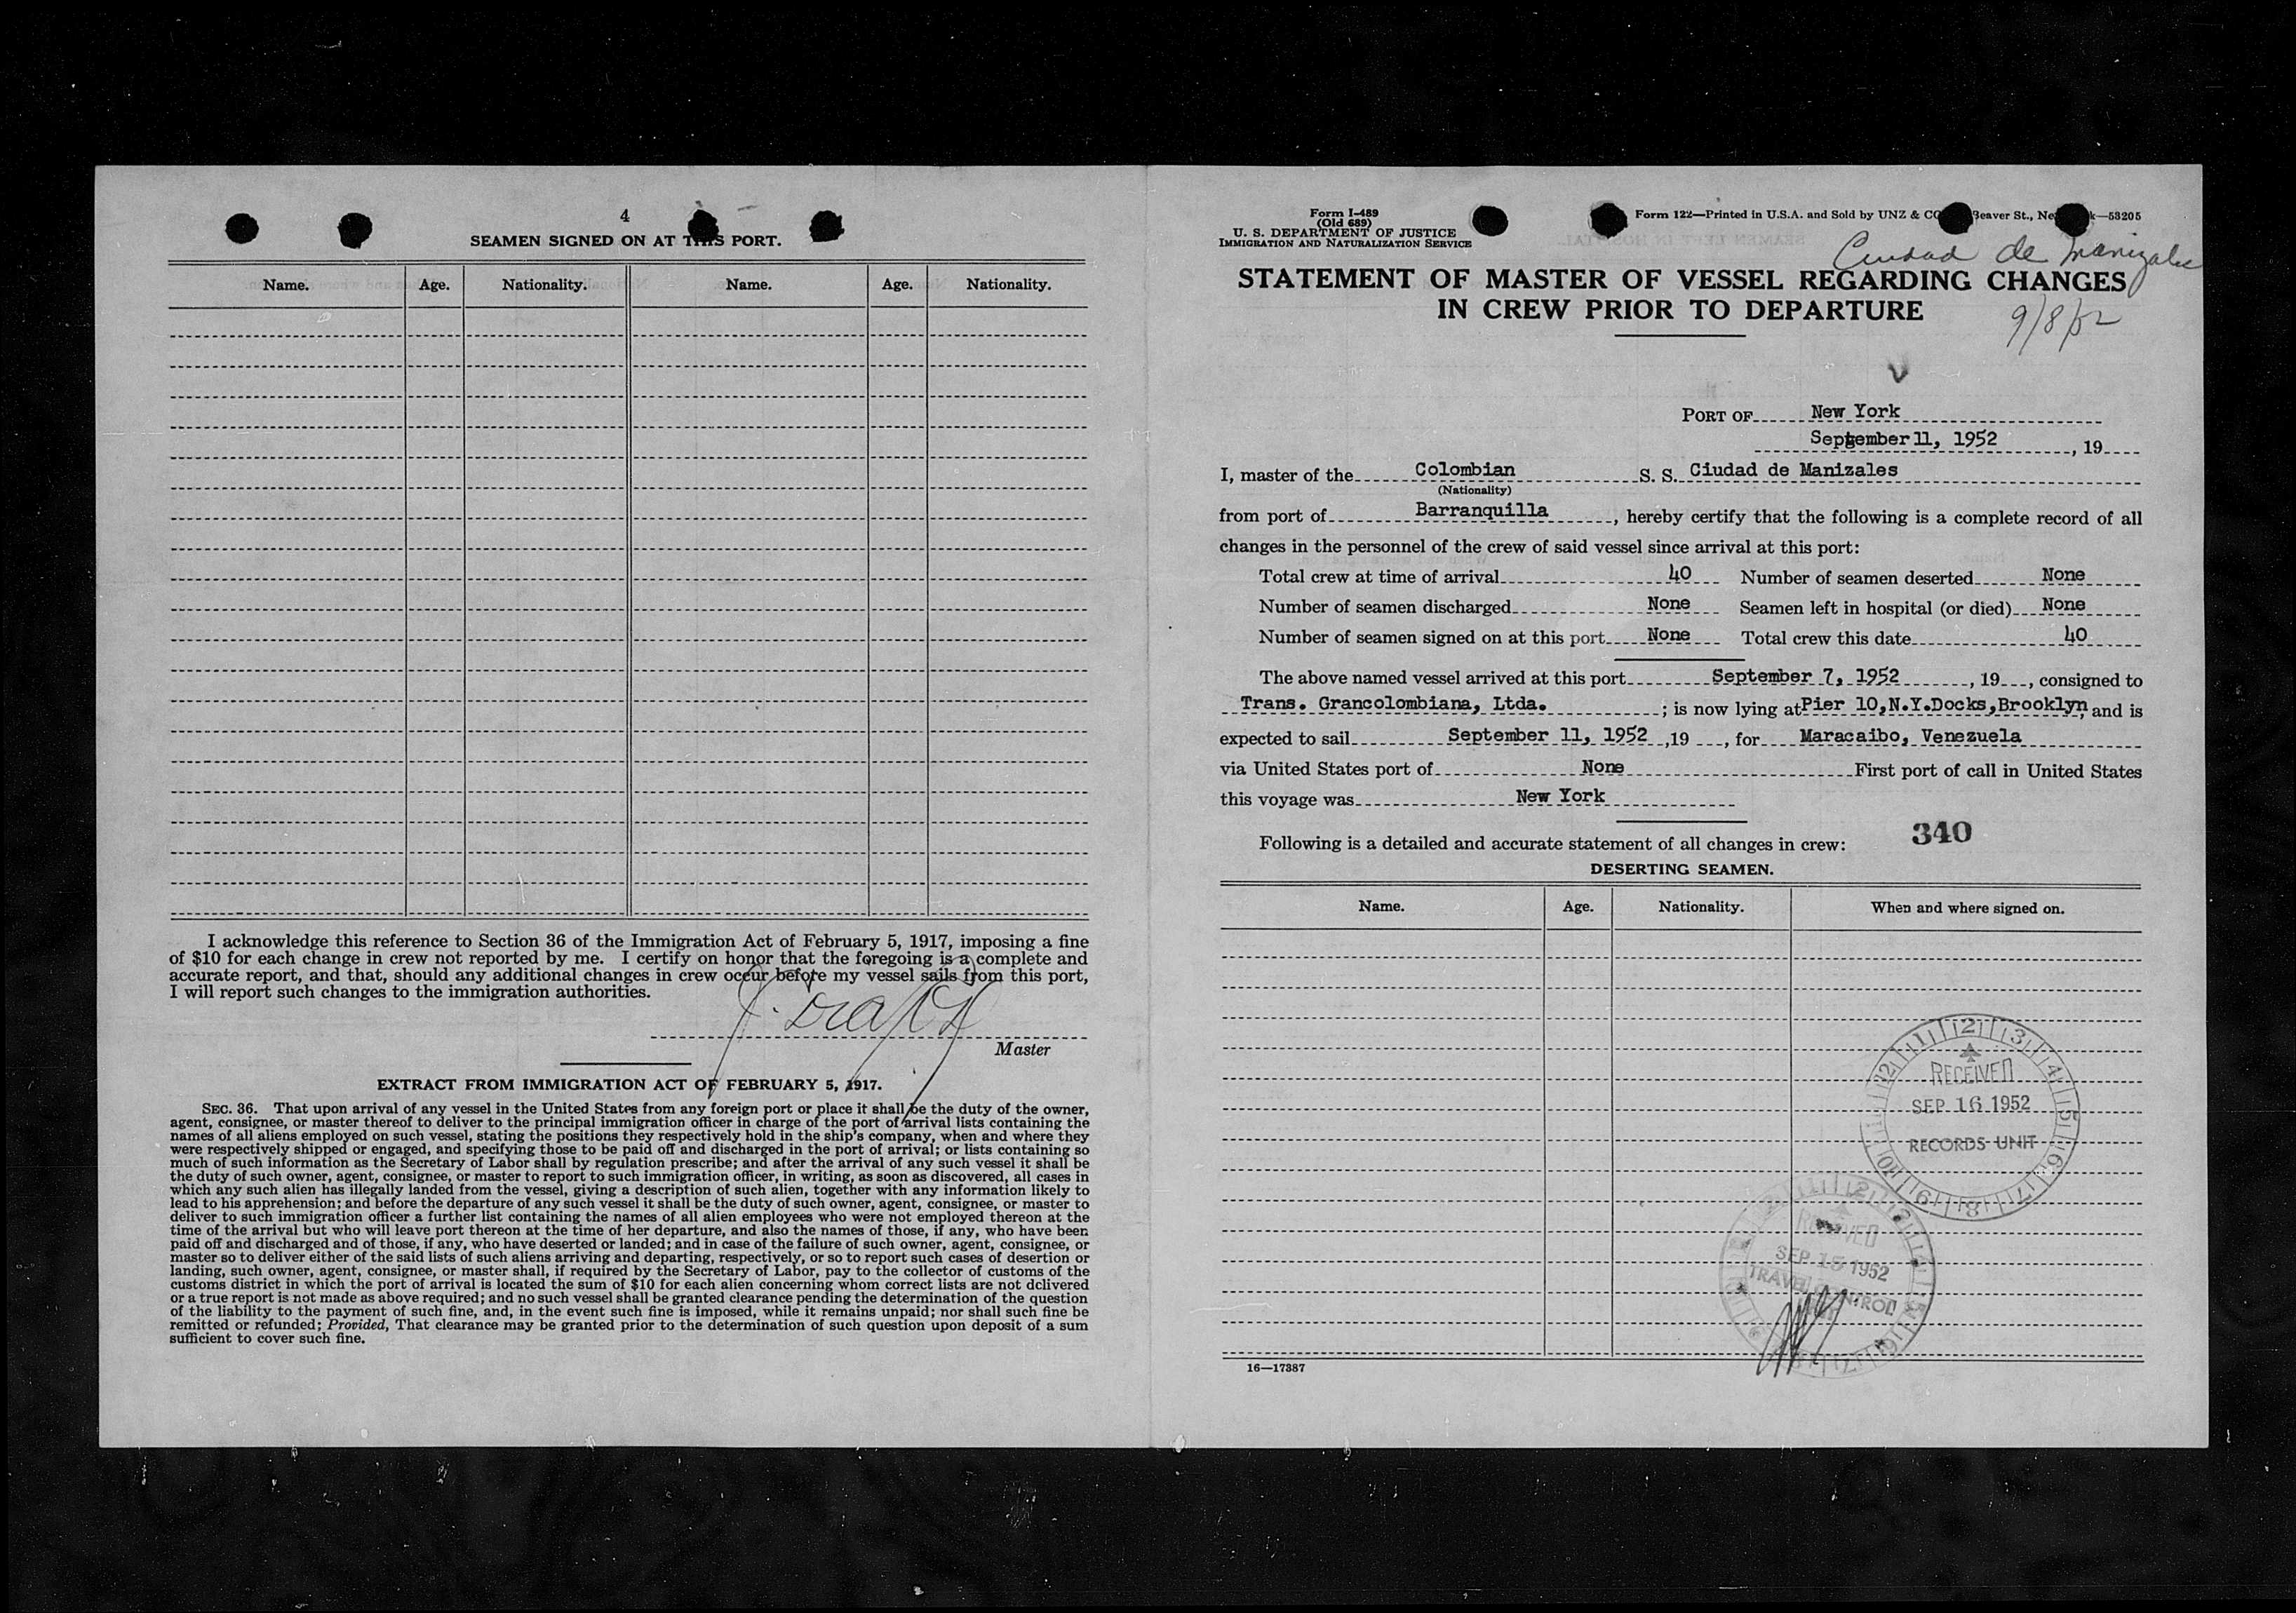 4
SEAMEN SIGNED ON AT THIS PORT.
Name. Age. Nationality. Name. Age. Nationality.
I acknowledge this reference to Section 36 of the Immigration Act of February 5, 1917, imposing a fine
of $10 for each change in crew not reported by me. I certify on honor that the foregoing is a complete and
accurate report, and that, should any additional changes in crew occur before my vessel sails from this port,
I will report such changes to the immigration authorities.
Master
EXTRACT FROM IMMIGRATION ACT OF FEBRUARY 5, 1917.
SEC. 36. That upon arrival of any vessel in the United States from any foreign port or place it shall be the duty of the owner,
agent, consignee, or master thereof to deliver to the principal immigration officer in charge of the port of arrival lists containing the
names of all aliens employed on such vessel, stating the positions they respectively hold in the ship's company, when and where they
were respectively shipped or engaged, and specifying those to be paid off and discharged in the port of arrival; or lists containing so
much of such information as the Secretary of Labor shall by regulation prescribe; and after the arrival of any such vessel it shall be
the duty of such owner, agent, consignee, or master to report to such immigration officer, in writing, as soon as discovered, all cases in
which any such alien has illegally landed from the vessel, giving a description of such alien, together with any information likely to
lead to his apprehension; and before the departure of any such vessel it shall be the duty of such owner, agent, consignee, or master to
deliver to such immigration officer a further list containing the names of all alien employees who were not employed thereon at the
time of the arrival but who will leave port thereon at the time of her departure, and also the names of those, if any, who have been
paid off and discharged and of those, if any, who have deserted or landed; and in case of the failure of such owner, agent, consignee, or
master so to deliver either of the said lists of such aliens arriving and departing, respectively, or so to report such cases of desertion or
landing, such owner, agent, consignee, or master shall, if required by the Secretary of Labor, pay to the collector of customs of the
customs district in which the port of arrival is located the sum of $10 for each alien concerning whom correct lists are not delivered
or a true report is not made as above required; and no such vessel shall be granted clearance pending the determination of the question
of the liability to the payment of such fine, and, in the event such fine is imposed, while it remains unpaid; nor shall such fine be
remitted or refunded; Provided, That clearance may be granted prior to the determination of such question upon deposit of a sum
sufficient to cover such fine.
Form I-489
(Old 689)
U. S. DEPARTMENT OF JUSTICE
IMMIGRATION AND NATURALIZATION SERVICE
Form 122—Printed in U.S.A. and Sold by UNZ & CO Beaver St., Ne k—53205
Ciudad de Manizales
STATEMENT OF MASTER OF VESSEL REGARDING CHANGES
IN CREW PRIOR TO DEPARTURE
9/8/52
PORT OF New York
September 11, 1952, 19
I, master of the Colombian S. S. Ciudad de Manizales
(Nationality)
from port of Barranquilla, hereby certify that the following is a complete record of all
changes in the personnel of the crew of said vessel since arrival at this port:
Total crew at time of arrival 40 Number of seamen deserted None
Number of seamen discharged None Seamen left in hospital (or died) None
Number of seamen signed on at this port None Total crew this date 40
The above named vessel arrived at this port September 7, 1952, 19, consigned to
Trans. Grancolombiana, Ltda.; is now lying at Pier 10,N.Y.Docks,Brooklyn, and is
expected to sail September 11, 1952 ,19, for Maracaibo, Venezuela
via United States port of None First port of call in United States
this voyage was New York
Following is a detailed and accurate statement of all changes in crew: 340
DESERTING SEAMEN.
Name. Age. Nationality. When and where signed on.
RECEIVED
SEP 16 1952
RECORDS UNIT
RECEIVED
SEP 15 1952
TRAVEL CONTROL
16—17387